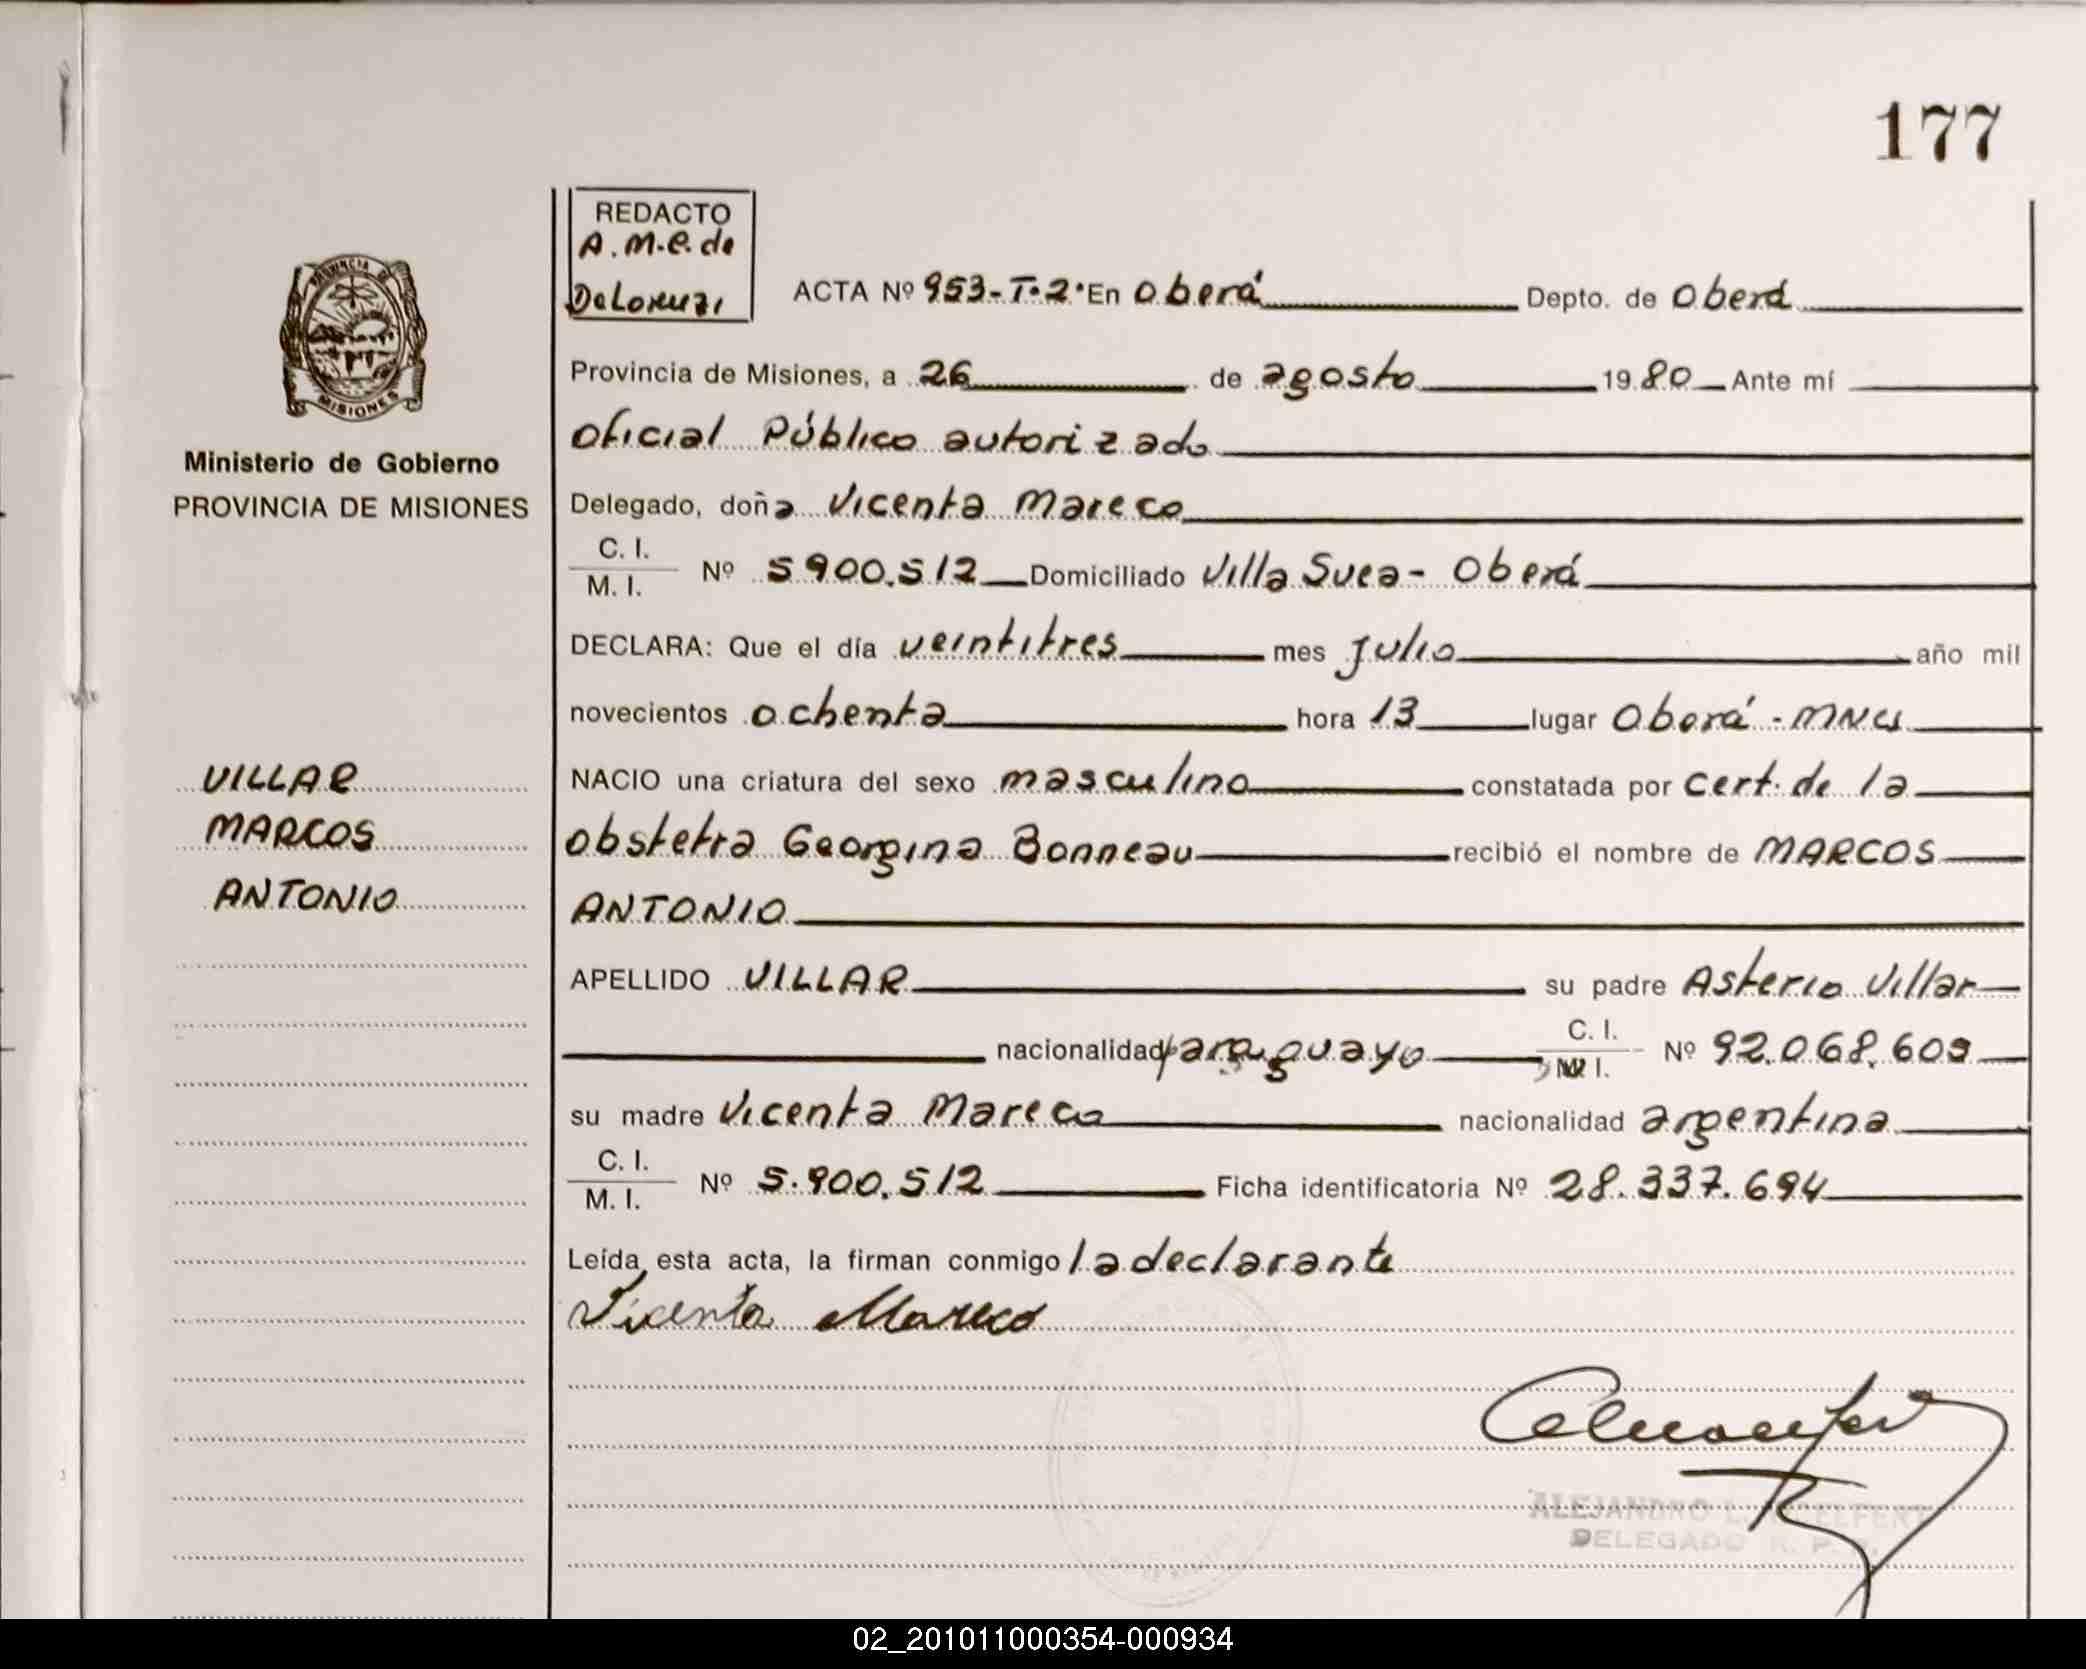 177
REDACTO
A.M.E. de
DeLorenzi
ACTA Nº 953-T.2. En Oberá Depto. de Oberá
Provincia de Misiones, a 26 de agosto 1980 Ante mí
PROVINCIA DE
MISIONES
Oficial Público autorizado
Ministerio de Gobierno
PROVINCIA DE MISIONES
Delegado, doña Vicenta Mareco
C. I.
M. I. Nº 5900.512 Domiciliado Villa Svea - Oberá
DECLARA: Que el día veintitres mes julio año mil
novecientos ochenta hora 13 lugar Oberá - MNES
VILLAR
NACIO una criatura del sexo masculino constatada por cert. de la
MARCOS
obstetra Georgina Bonneau recibió el nombre de MARCOS
ANTONIO
ANTONIO
APELLIDO VILLAR su padre Asterio Villar
nacionalidad paraguayo C. I. M. I. Nº 92.068.609
su madre Vicenta Mareco nacionalidad argentina
C. I.
M. I. Nº 5.900.512 Ficha identificatoria Nº 28.337.694
Leída esta acta, la firman conmigo la declarante
Vicenta Mareco
ALEJANDRO L.
DELEGADO R. P.
02_201011000354-000934